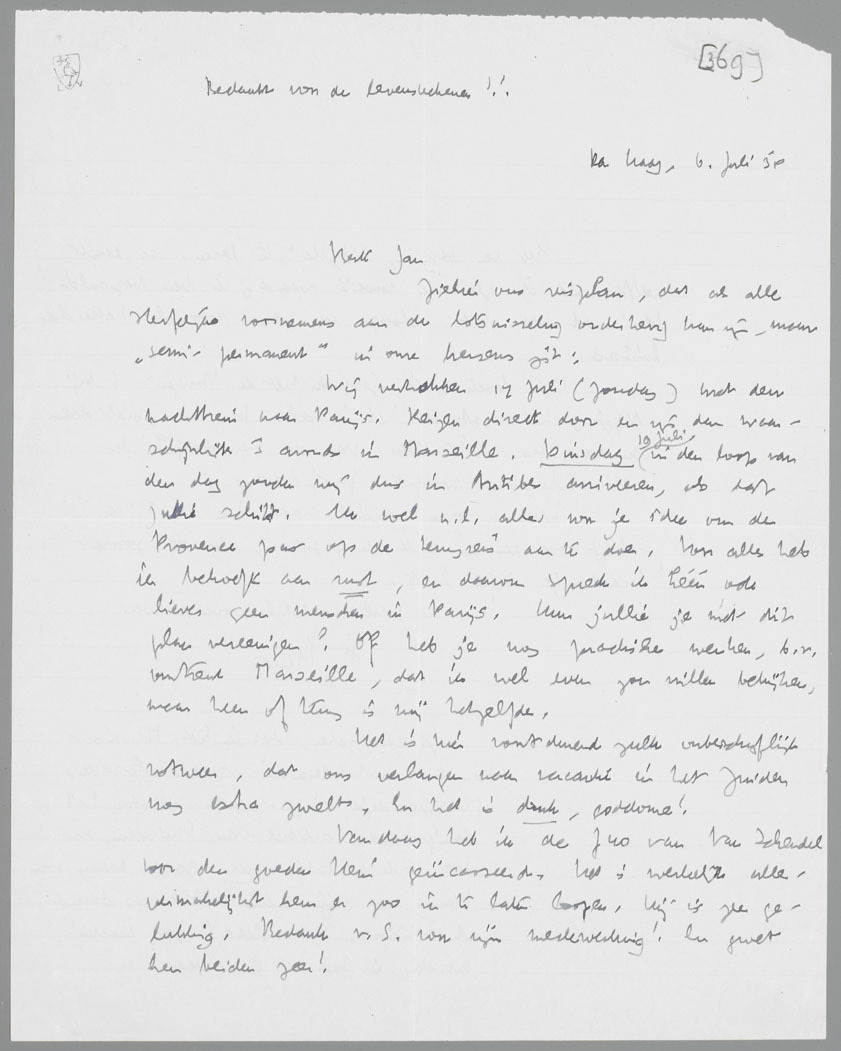 [369]
Bedankt voor de levensteekenen!!
Den Haag, 6 Juli 38
Beste Jan
Ziehier ons reisplan, dat als alle
sterfelijke voornemens aan de lotswisseling onderhevig kan zijn, maar
„semi-permanent" in onze hersens zit:
Wij vertrekken 17 Juli (Zondag) met den
nachttrein naar Parijs. Reizen direct door en zijn dan waar-
schijnlijk 's avonds in Marseille. Dinsdag 19 Juli in den loop van
den dag zouden wij dus in Antibes arriveeren, als dat
jullie schikt. Ik wel n.l. alles voor je idee om de
Provence pas op de terugreis aan te doen. Voor alles heb
ik behoefte aan rust, en daarom spreek ik liefst ook
liever geen menschen in Parijs. Kun jullie je met dit
plan vereenigen? Of heb je nog practische wenken, b.v.
omtrent Marseille, dat ik wel even zou willen bekijken,
maar heen of terug is mij hetzelfde.
Het is hier voortdurend zulk onbeschrijflijk
rotweer, dat ons verlangen naar vacantie in het Zuiden
nog extra zwelt. En het is druk, goddome!
Vandaag heb ik de Juo van Van Schendel
voor den goeden Henri geïncasseerd. Het is werkelijk aller-
vermakelijkst hem er zoo in te laten loopen. Hij is zeer ge-
lukkig. Bedank v. S. voor zijn medewerking! En groet
hen beiden zeer!